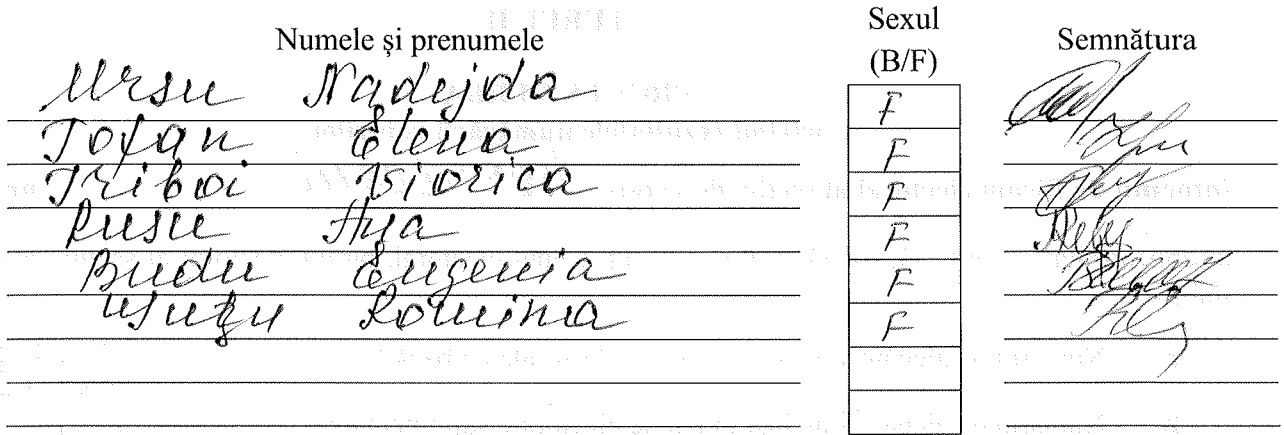 Numele și prenumele Sexul (B/F) Semnătura
Ursu Nadejda F
Tofan Elena F
Triboi Viorica F
Rusu F
Budu Eugenia F
Romina F